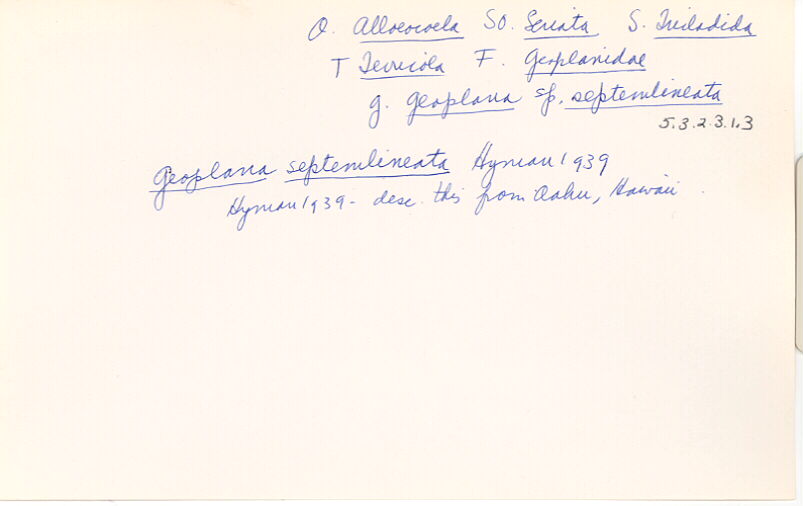 O. Alloeocoela SO. Seriata S. Tricladida
T Terricola F. Geoplanidae
g. geoplana sp. septemlineata
5.3.2.3.1.3
Geoplana septemlineata Hyman 1939
Hyman 1939 - desc. this from Oahu, Hawaii.